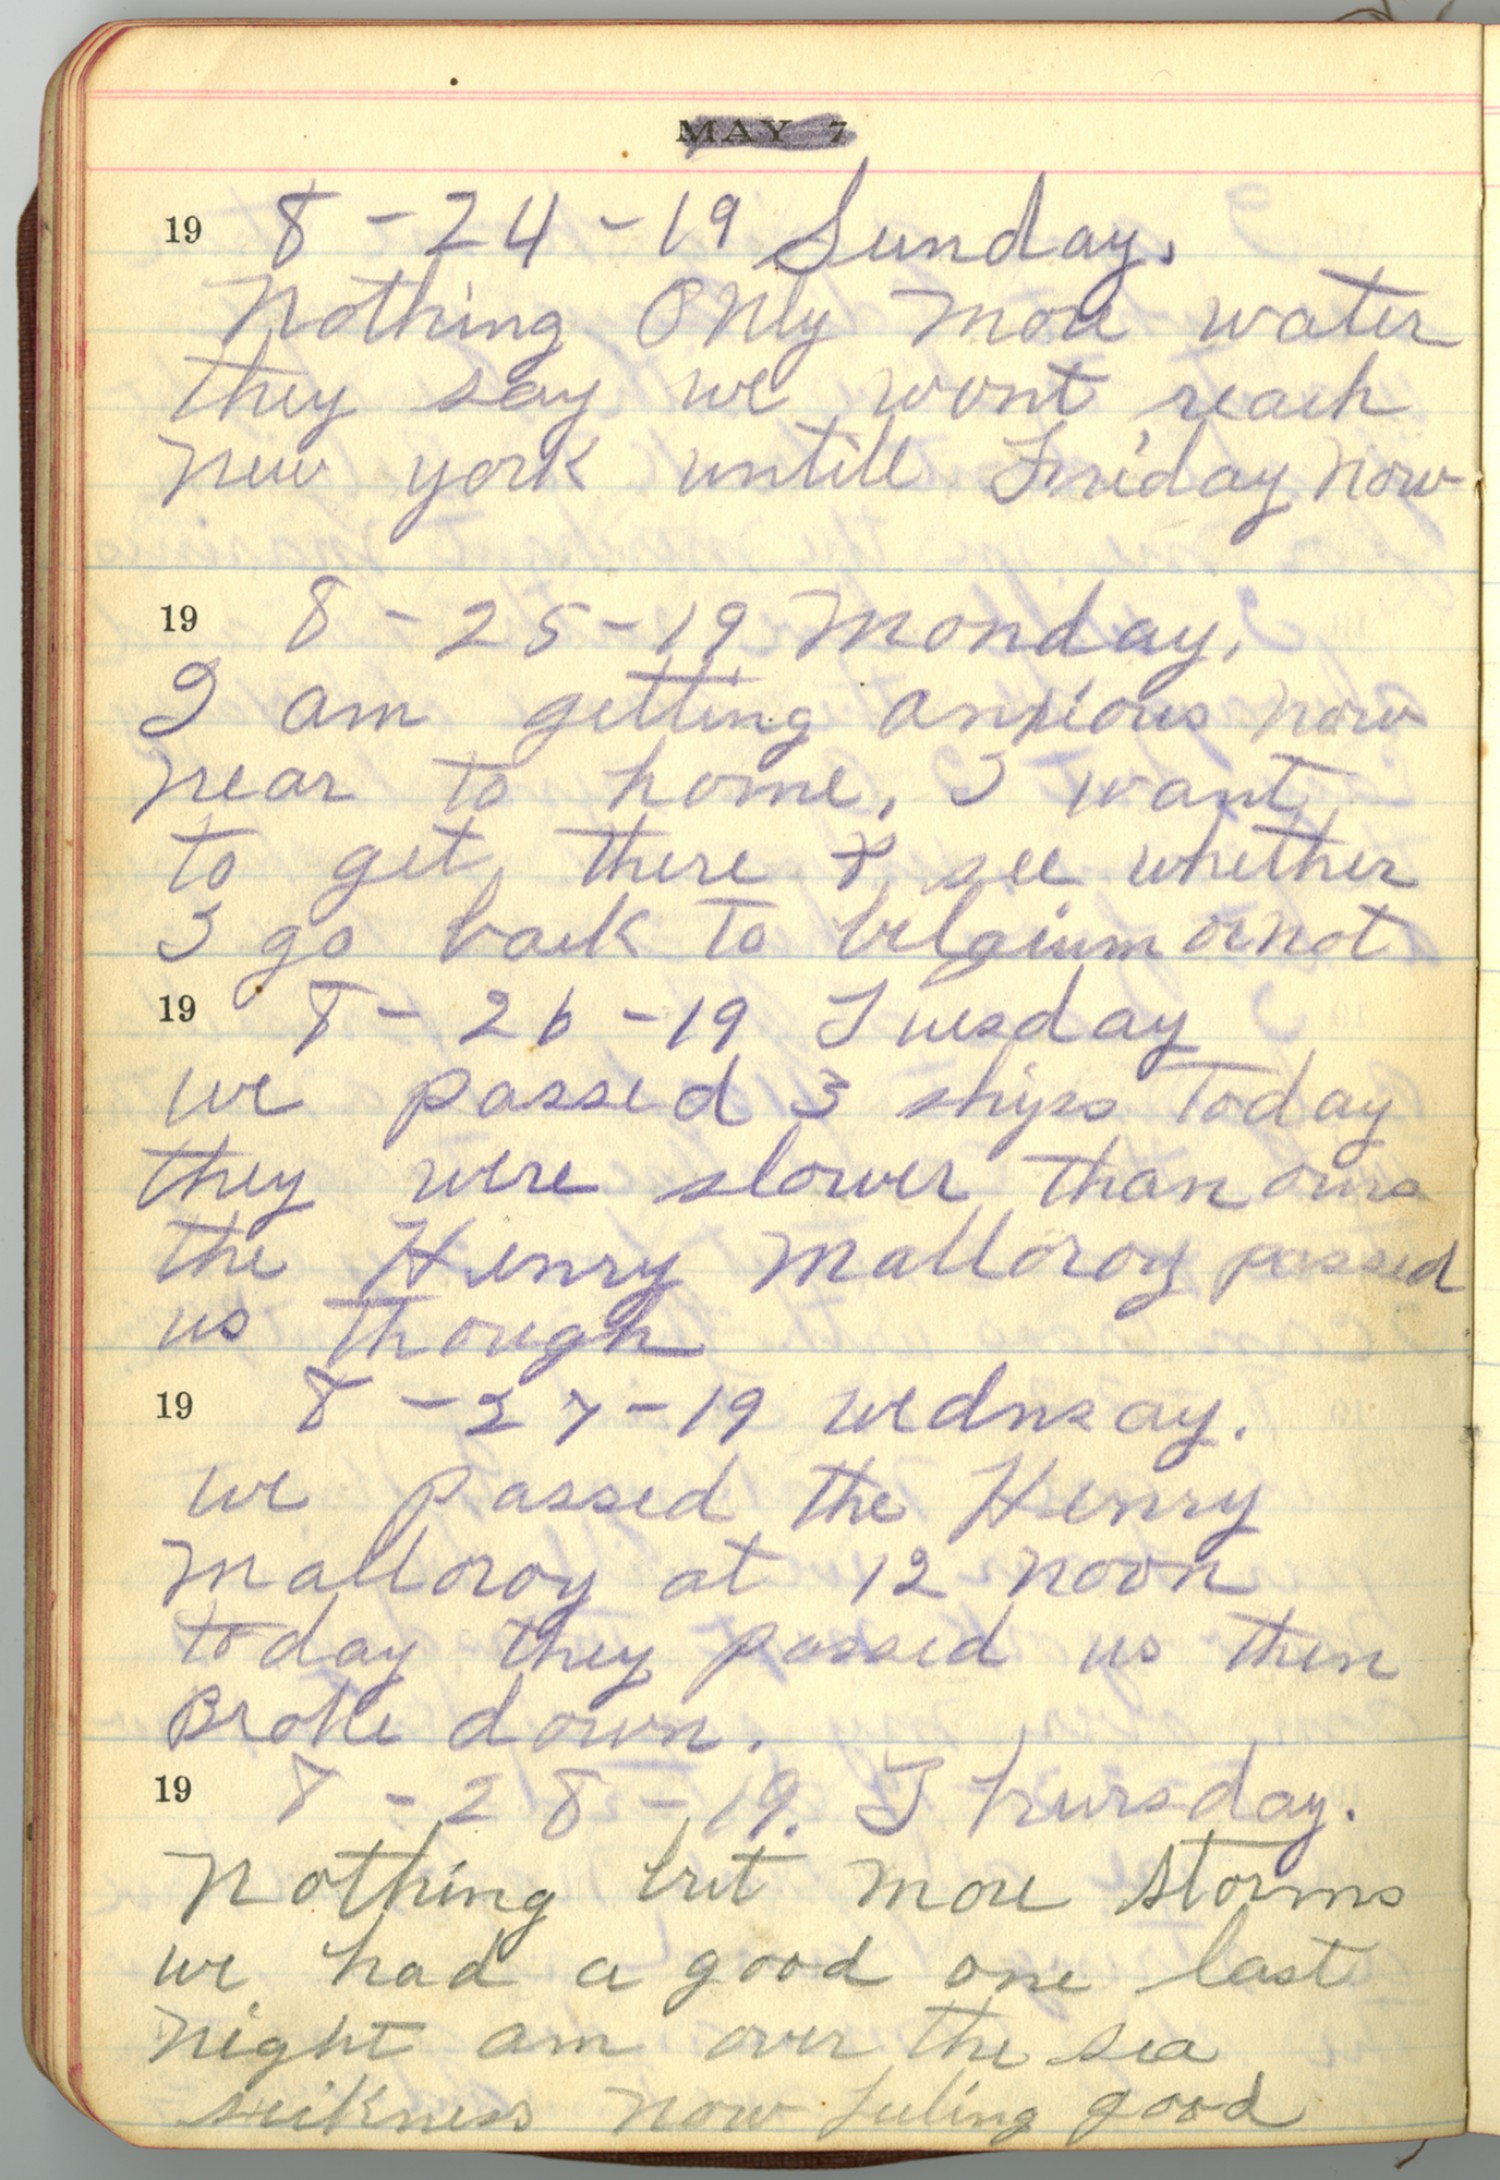 MAY 7
19 8-24-19 Sunday.
Nothing Only more water
they say we wont reach
New york untill Friday now
19 8-25-19 Monday.
I am getting anxious now
near to home. I want
to get there & see whether
I go back to belgium or not
19 8-26-19 Tuesday
we passed 3 ships today
they were slower than ours
the Henry Malloroy passed
us though
19 8-27-19 wednsay.
we passed the Henry
Malloroy at 12 noon
today they passed us then
Broke down.
19 8-28-19. Thursday.
Nothing but more storms
we had a good one last
night am over the sea
seikness now feeling good